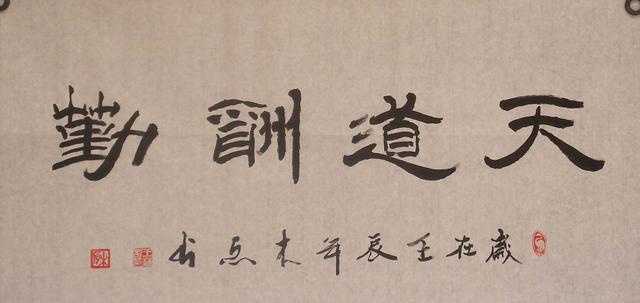 天道酬勤
歲在壬辰年书